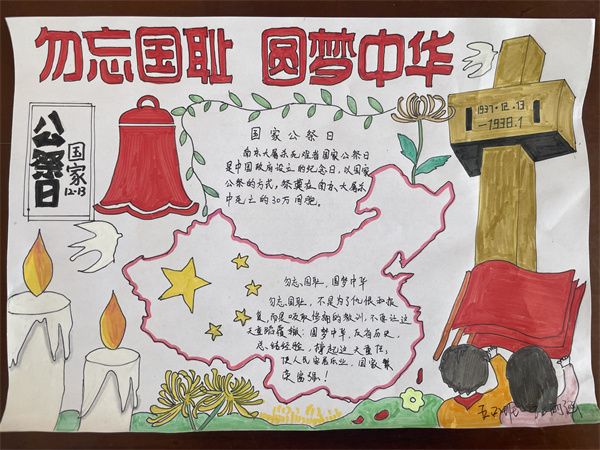 勿忘国耻 圆梦中华
公祭日
国家
12.13
1937.12.13
—1938.1
国家公祭日
南京大屠杀死难者国家公祭日
是中国政府设立的纪念日，以国家
公祭的方式，祭奠在南京大屠杀
中死亡的30万同胞。
勿忘国耻，圆梦中华
勿忘国耻，不是为了仇恨和报
复，而是吸取惨痛的教训，不要让这
天重蹈覆辙；圆梦中华，反省历史，
总结经验，撑起这大重任，
使人民安居乐业，国家繁
荣富强！